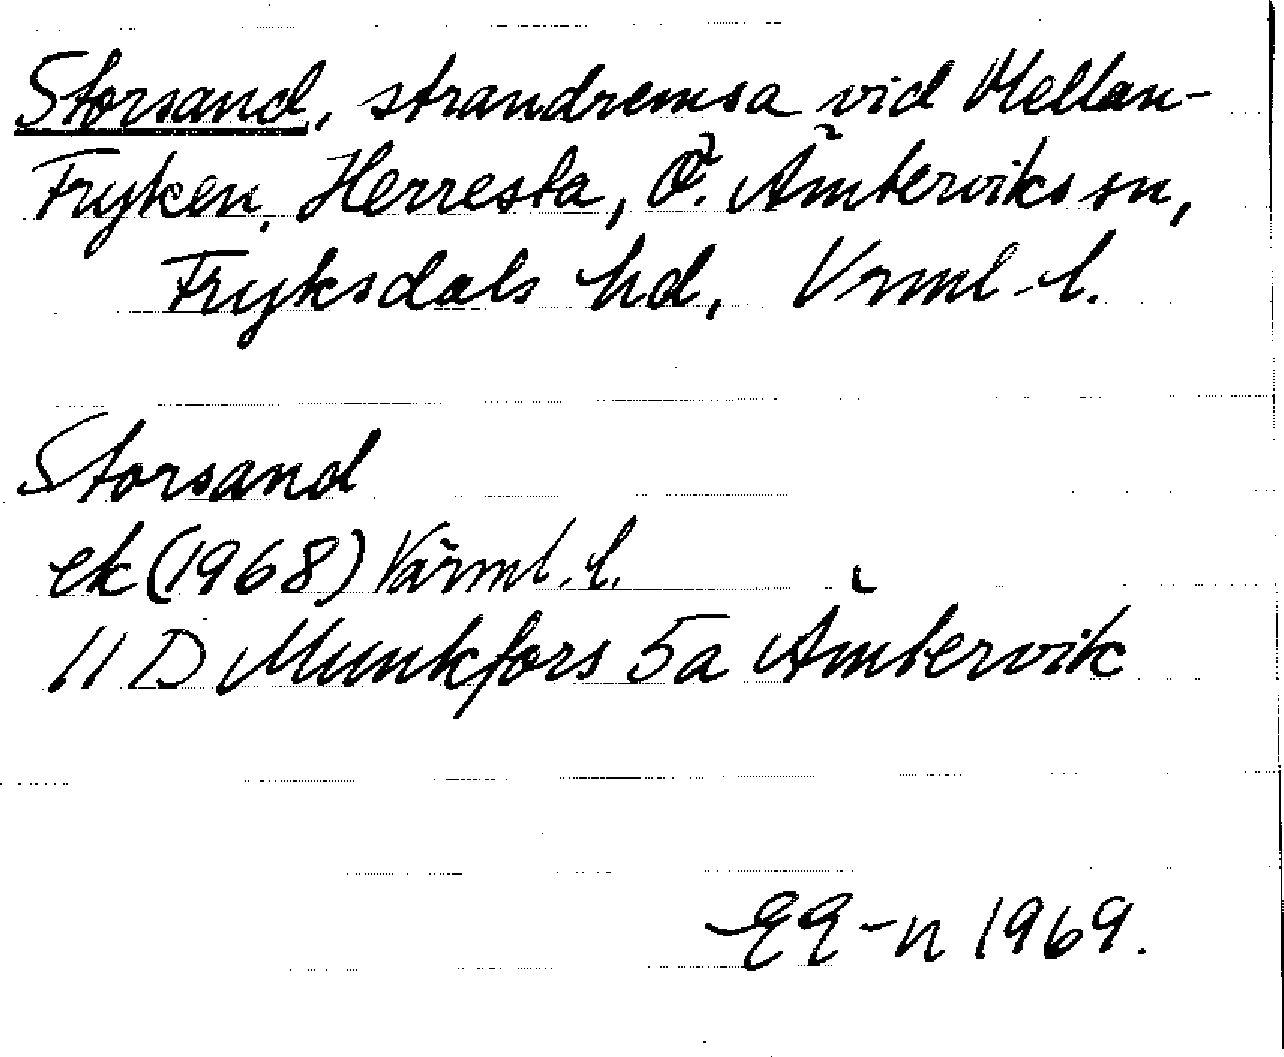 Storsand, strandremsa vid Mellan-
Fryken, Herresta, Ö. Ämterviks sn,
Fryksdals hd, Vrml. l.
Storsand
ek (1968) Värml. l.
11 D Munkfors 5a Ämtervik
EE-n 1969.